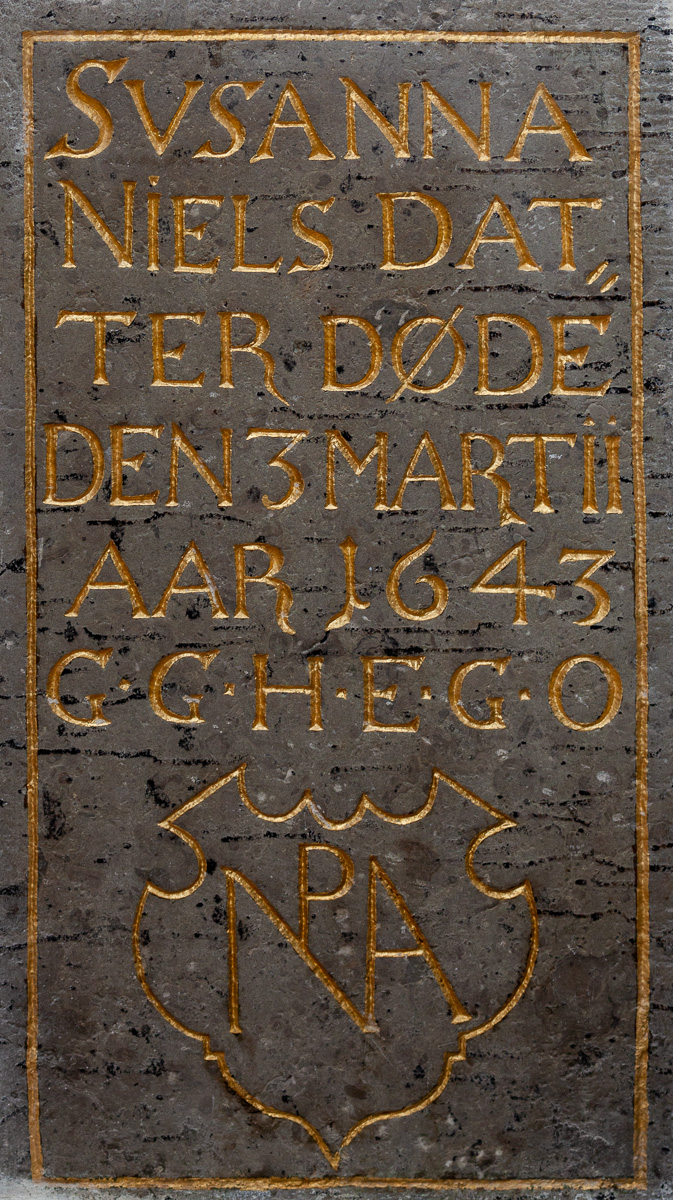 SVSANNA
NIELS DAT„
TER DØDE
DEN 3 MARTII
AAR 1643
G·G·H·E·G·O
NPA